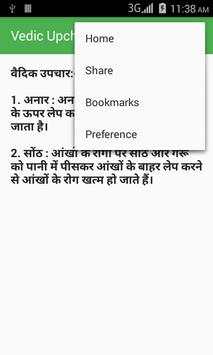 3G 11:38 AM
Vedic Upch
Home
Share
Bookmarks
Preference
वैदिक उपचार:
1. अनार : अन
के ऊपर लेप क
जाता है।
2. सोंठ : आंखों के रोगों पर सोंठ और गेरू
को पानी में पीसकर आंखों के बाहर लेप करने
से आंखों के रोग खत्म हो जाते हैं।